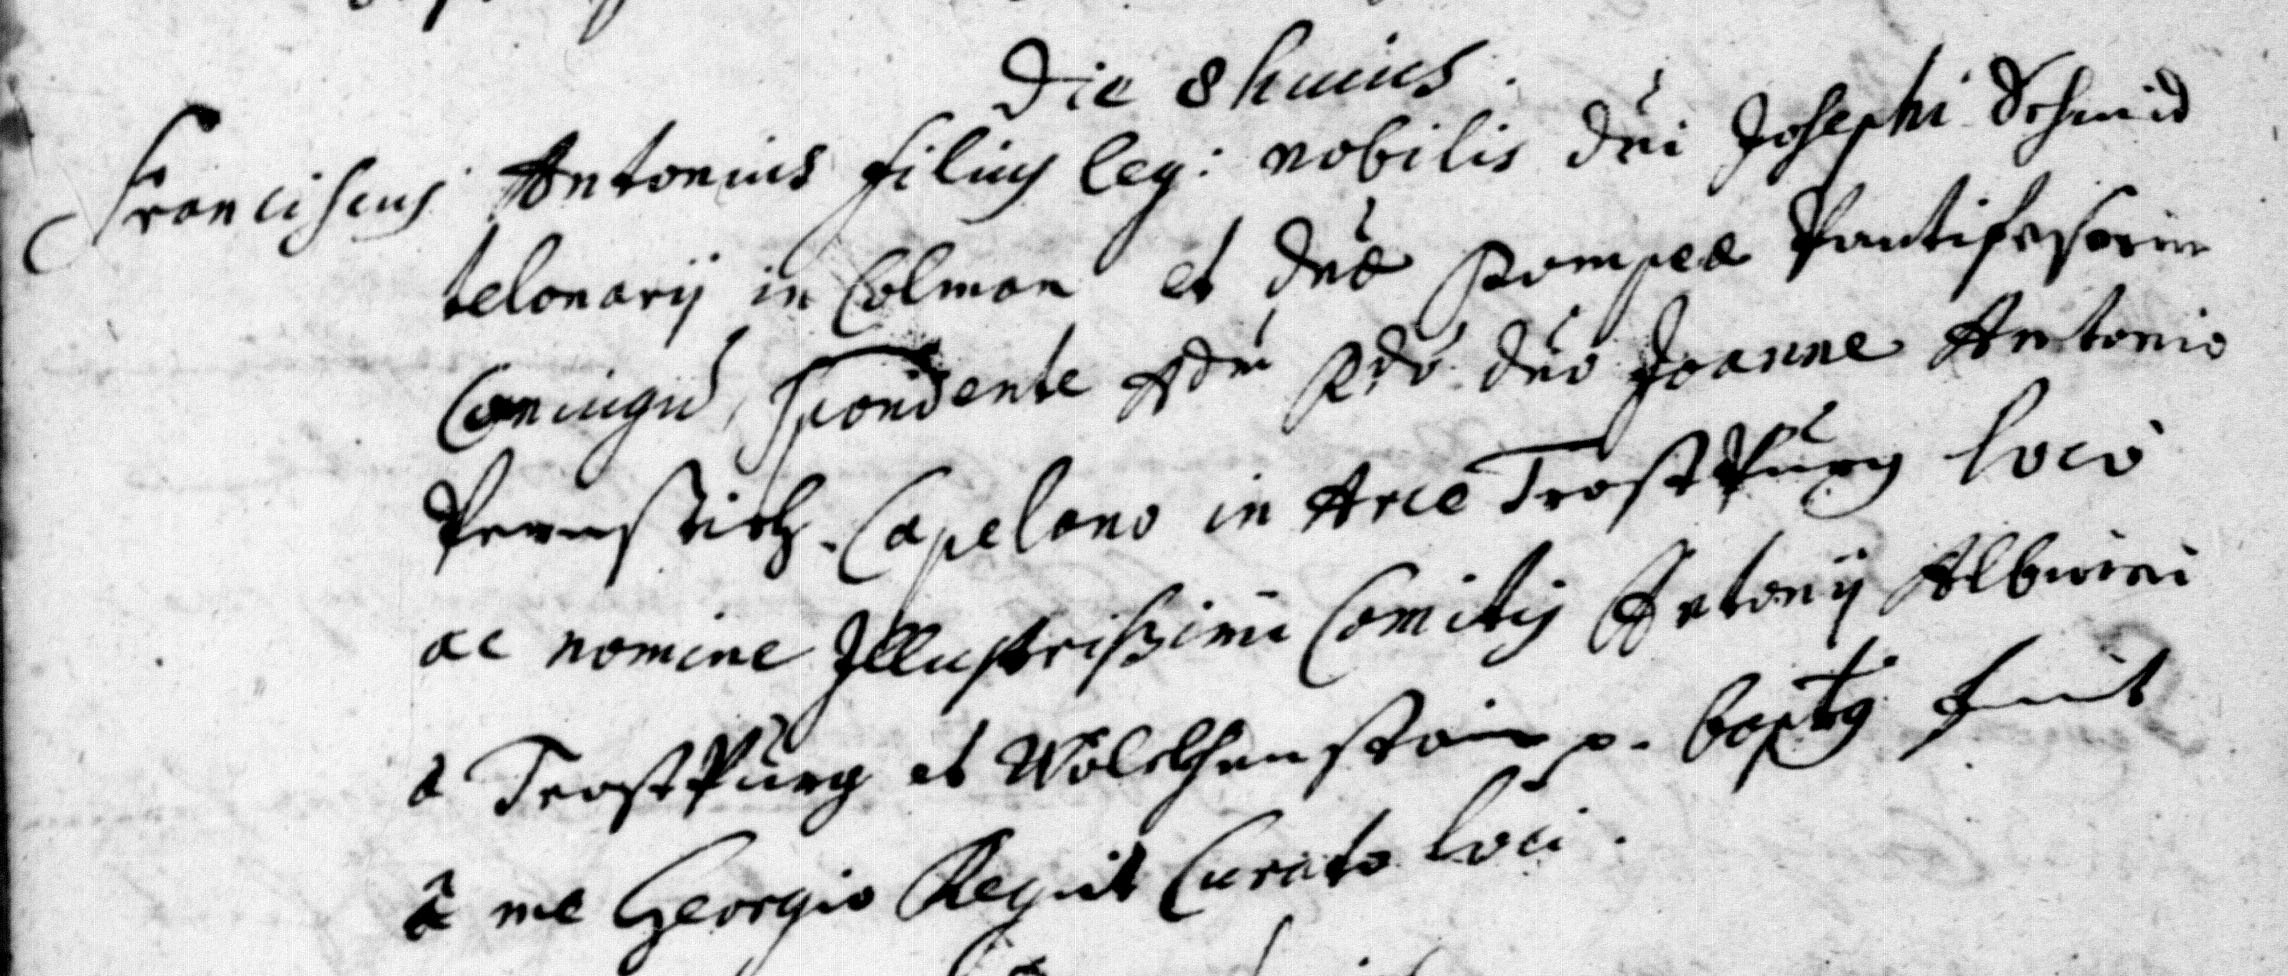 Die 8 huius.
Franciscus Antonius filius leg: nobilis dni Josephi Schmid
telonarij in Colman et dnæ Pompeæ
Coniugu, spondente Adm Rdo dno Joanne Antonio
Capelano in Arce Trostpurg loco
ac nomine Illustrissimi Comitis Antonij
à Trostpurg et Wolckhenstain p. baptus fuit
à me Georgio Curato loci.